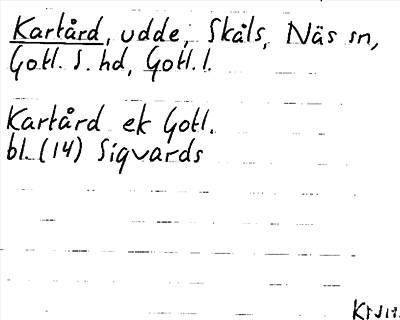 Kartård, udde, Skåls, Näs sn,
Gotl. S. hd, Gotl. l.
Kartård ek Gotl.
bl. (14) Sigvards